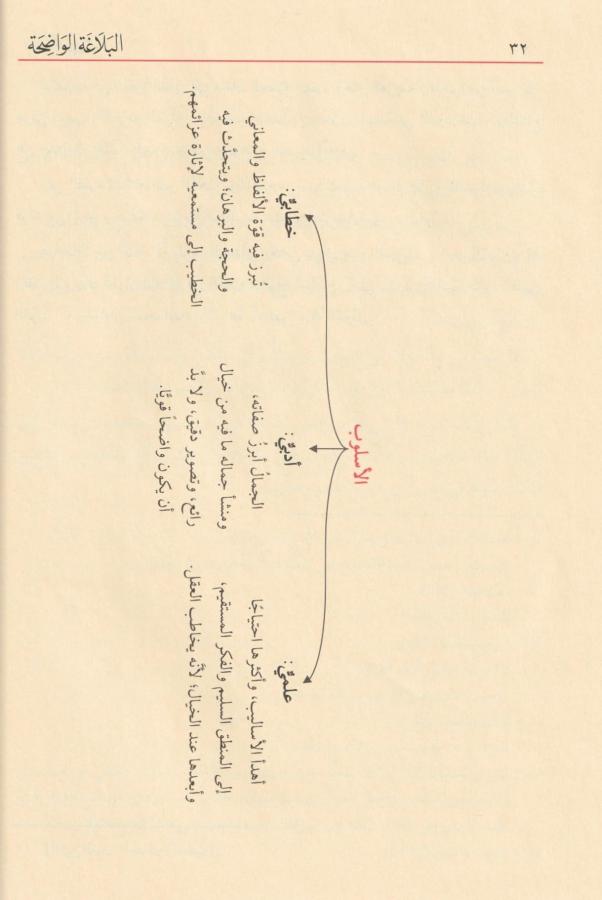 ٣٢
البَلَاغَة الوَاضِحَة
الأسلوب
علميٌّ:
أهدأ الأساليب، وأكثرها احتياجًا
إلى المنطق السليم والفكر المستقيم،
وأبعدها عند الخيال؛ لأنّه يخاطب العقل.
أدبيٌّ:
الجمالُ أبرزُ صفاته،
ومنشأ جماله ما فيه من خيال
رائع، وتصوير دقيق، ولا بدَّ
أن يكون واضحاً قويًّا.
خطابيٌّ:
تَبرز فيه قوّة الألفاظ والمعاني
والحجة والبرهان؛ ويتحدَّث فيه
الخطيب إلى مستمعيه لإثارة عزائمهم.